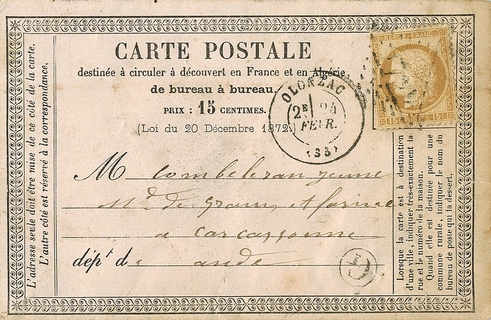 CARTE POSTALE
destinée à circuler à découvert en France et en Algérie
de bureau à bureau.
PRIX : 15 CENTIMES.
(Loi du 20 Décembre 1872)
OLONZAC
2E 24
FEVR.
(33)
M Combeleran jeune
Md de grain, farine
à Carcassonne
dépt de aude
L'adresse seule doit être mise de ce côté de la carte.
L'autre côté est réservé à la correspondance.
Lorsque la carte est à destination
d'une ville, indiquer très-exactement la
rue et le numéro de la maison.
Quand elle est destinée pour une
commune rurale, indiquer le nom du
bureau de poste qui la dessert.